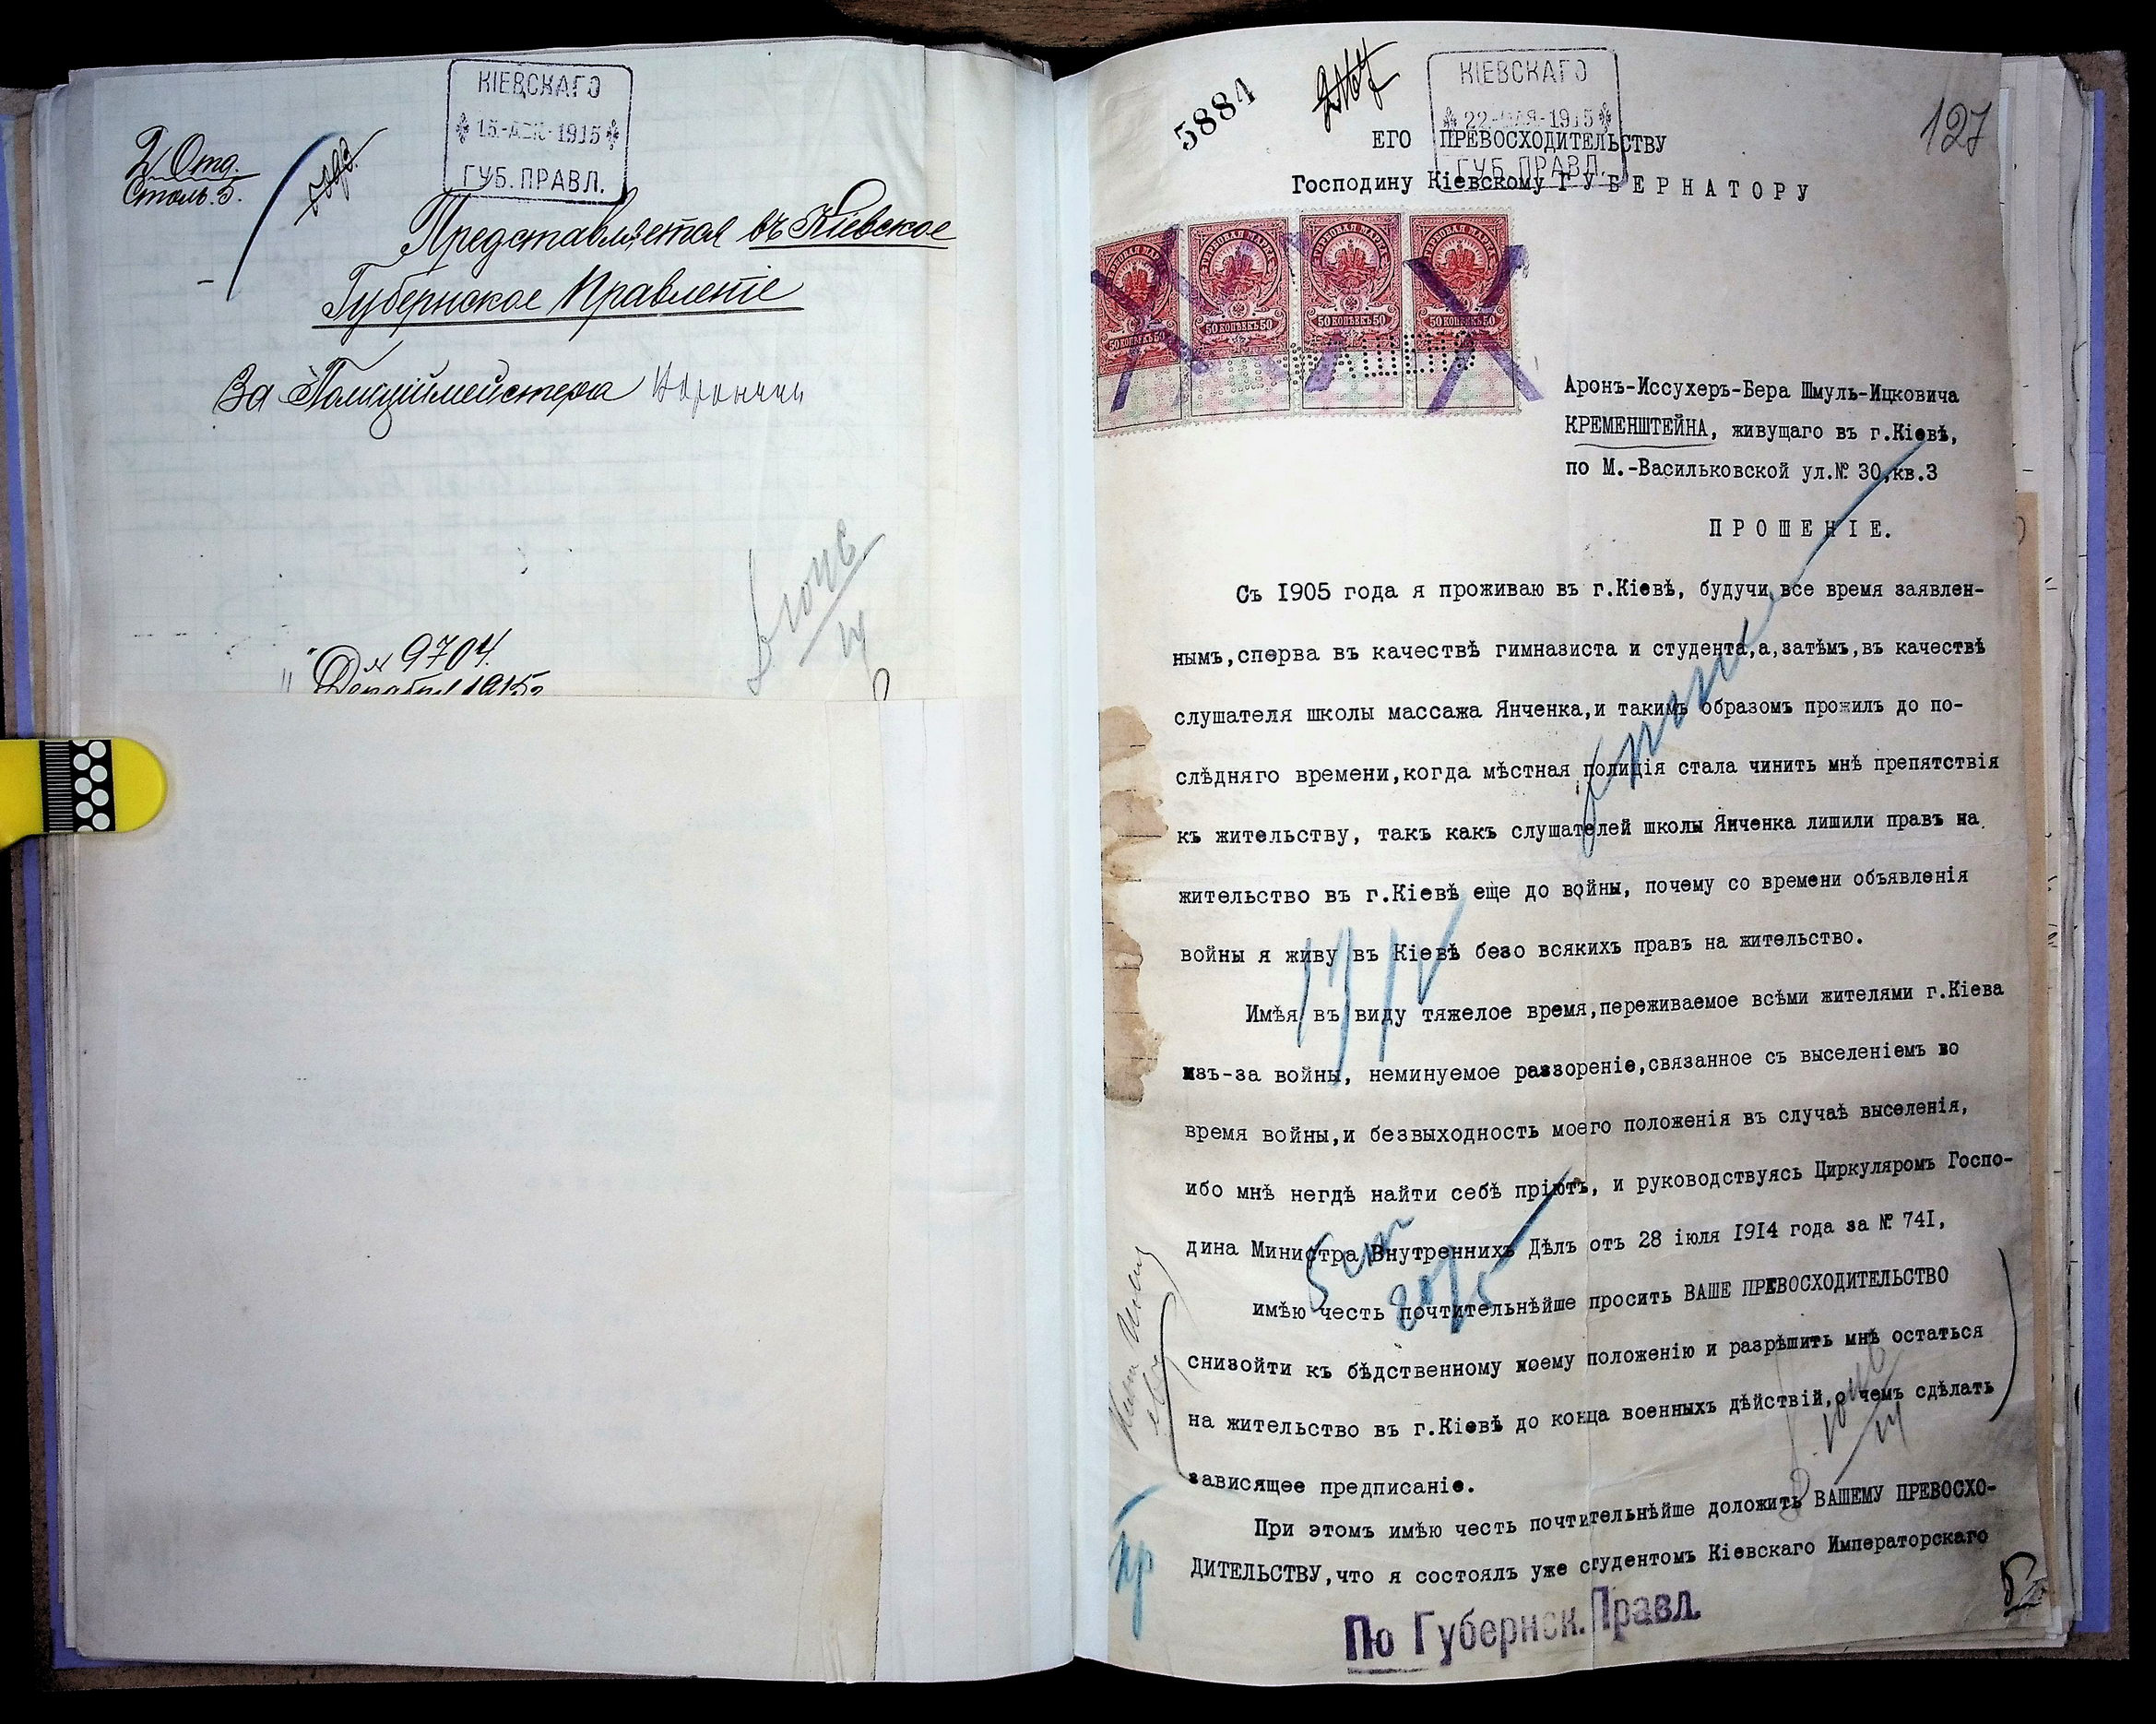 КІЕВСКАГО
15-ДЕК-1915
ГУБ. ПРАВЛ.
2 Отд.
Столъ. 5.
Представляется въ Кіевское
Губернское Правленіе
За Полиціймейстера
№ 9704.
Декабря 1915г
5884
КІЕВСКАГО
22-МАЯ-1915
ГУБ. ПРАВЛ.
127
ЕГО ПРЕВОСХОДИТЕЛЬСТВУ
Господину Кіевскому ГУБЕРНАТОРУ
ГЕРБОВАЯ МАРКА ГЕРБОВАЯ МАРКА ГЕРБОВАЯ МАРКА ГЕРБОВАЯ МАРКА
50 КОПѢЕКЪ 50 50 КОПѢЕКЪ 50 50 КОПѢЕКЪ 50 50 КОПѢЕКЪ 50
Аронъ-Иссухеръ-Бера Шмуль-Ицковича
КРЕМЕНШТЕЙНА, живущаго въ г.Кіевѣ,
по М.-Васильковской ул.№ 30,кв.3
ПРОШЕНІЕ.
Съ 1905 года я проживаю въ г.Кіевѣ, будучи все время заявлен-
нымъ,сперва въ качествѣ гимназиста и студента,а,затѣмъ,въ качествѣ
слушателя школы массажа Янченка,и такимъ образомъ прожилъ до по-
слѣдняго времени,когда мѣстная полиція стала чинить мнѣ препятствія
къ жительству, такъ какъ слушателей школы Янченка лишили правъ на
жительство въ г.Кіевѣ еще до войны, почему со времени объявленія
войны я живу въ Кіевѣ безо всякихъ правъ на жительство.
Имѣя въ виду тяжелое время,переживаемое всѣми жителями г.Кіева
изъ-за войны, неминуемое раззореніе,связанное съ выселеніемъ во
время войны,и безвыходность моего положенія въ случаѣ выселенія,
ибо мнѣ негдѣ найти себѣ пріютъ, и руководствуясь Циркуляромъ Госпо-
дина Министра Внутреннихъ Дѣлъ отъ 28 іюля 1914 года за № 741,
имѣю честь почтительнѣйше просить ВАШЕ ПРЕВОСХОДИТЕЛЬСТВО
снизойти къ бѣдственному моему положенію и разрѣшить мнѣ остаться
на жительство въ г.Кіевѣ до конца военныхъ дѣйствій,о чемъ сдѣлать
зависящее предписаніе.
При этомъ имѣю честь почтительнѣйше доложить ВАШЕМУ ПРЕВОСХО-
ДИТЕЛЬСТВУ,что я состоялъ уже студентомъ Кіевскаго Императорскаго
По Губернск. Правл.